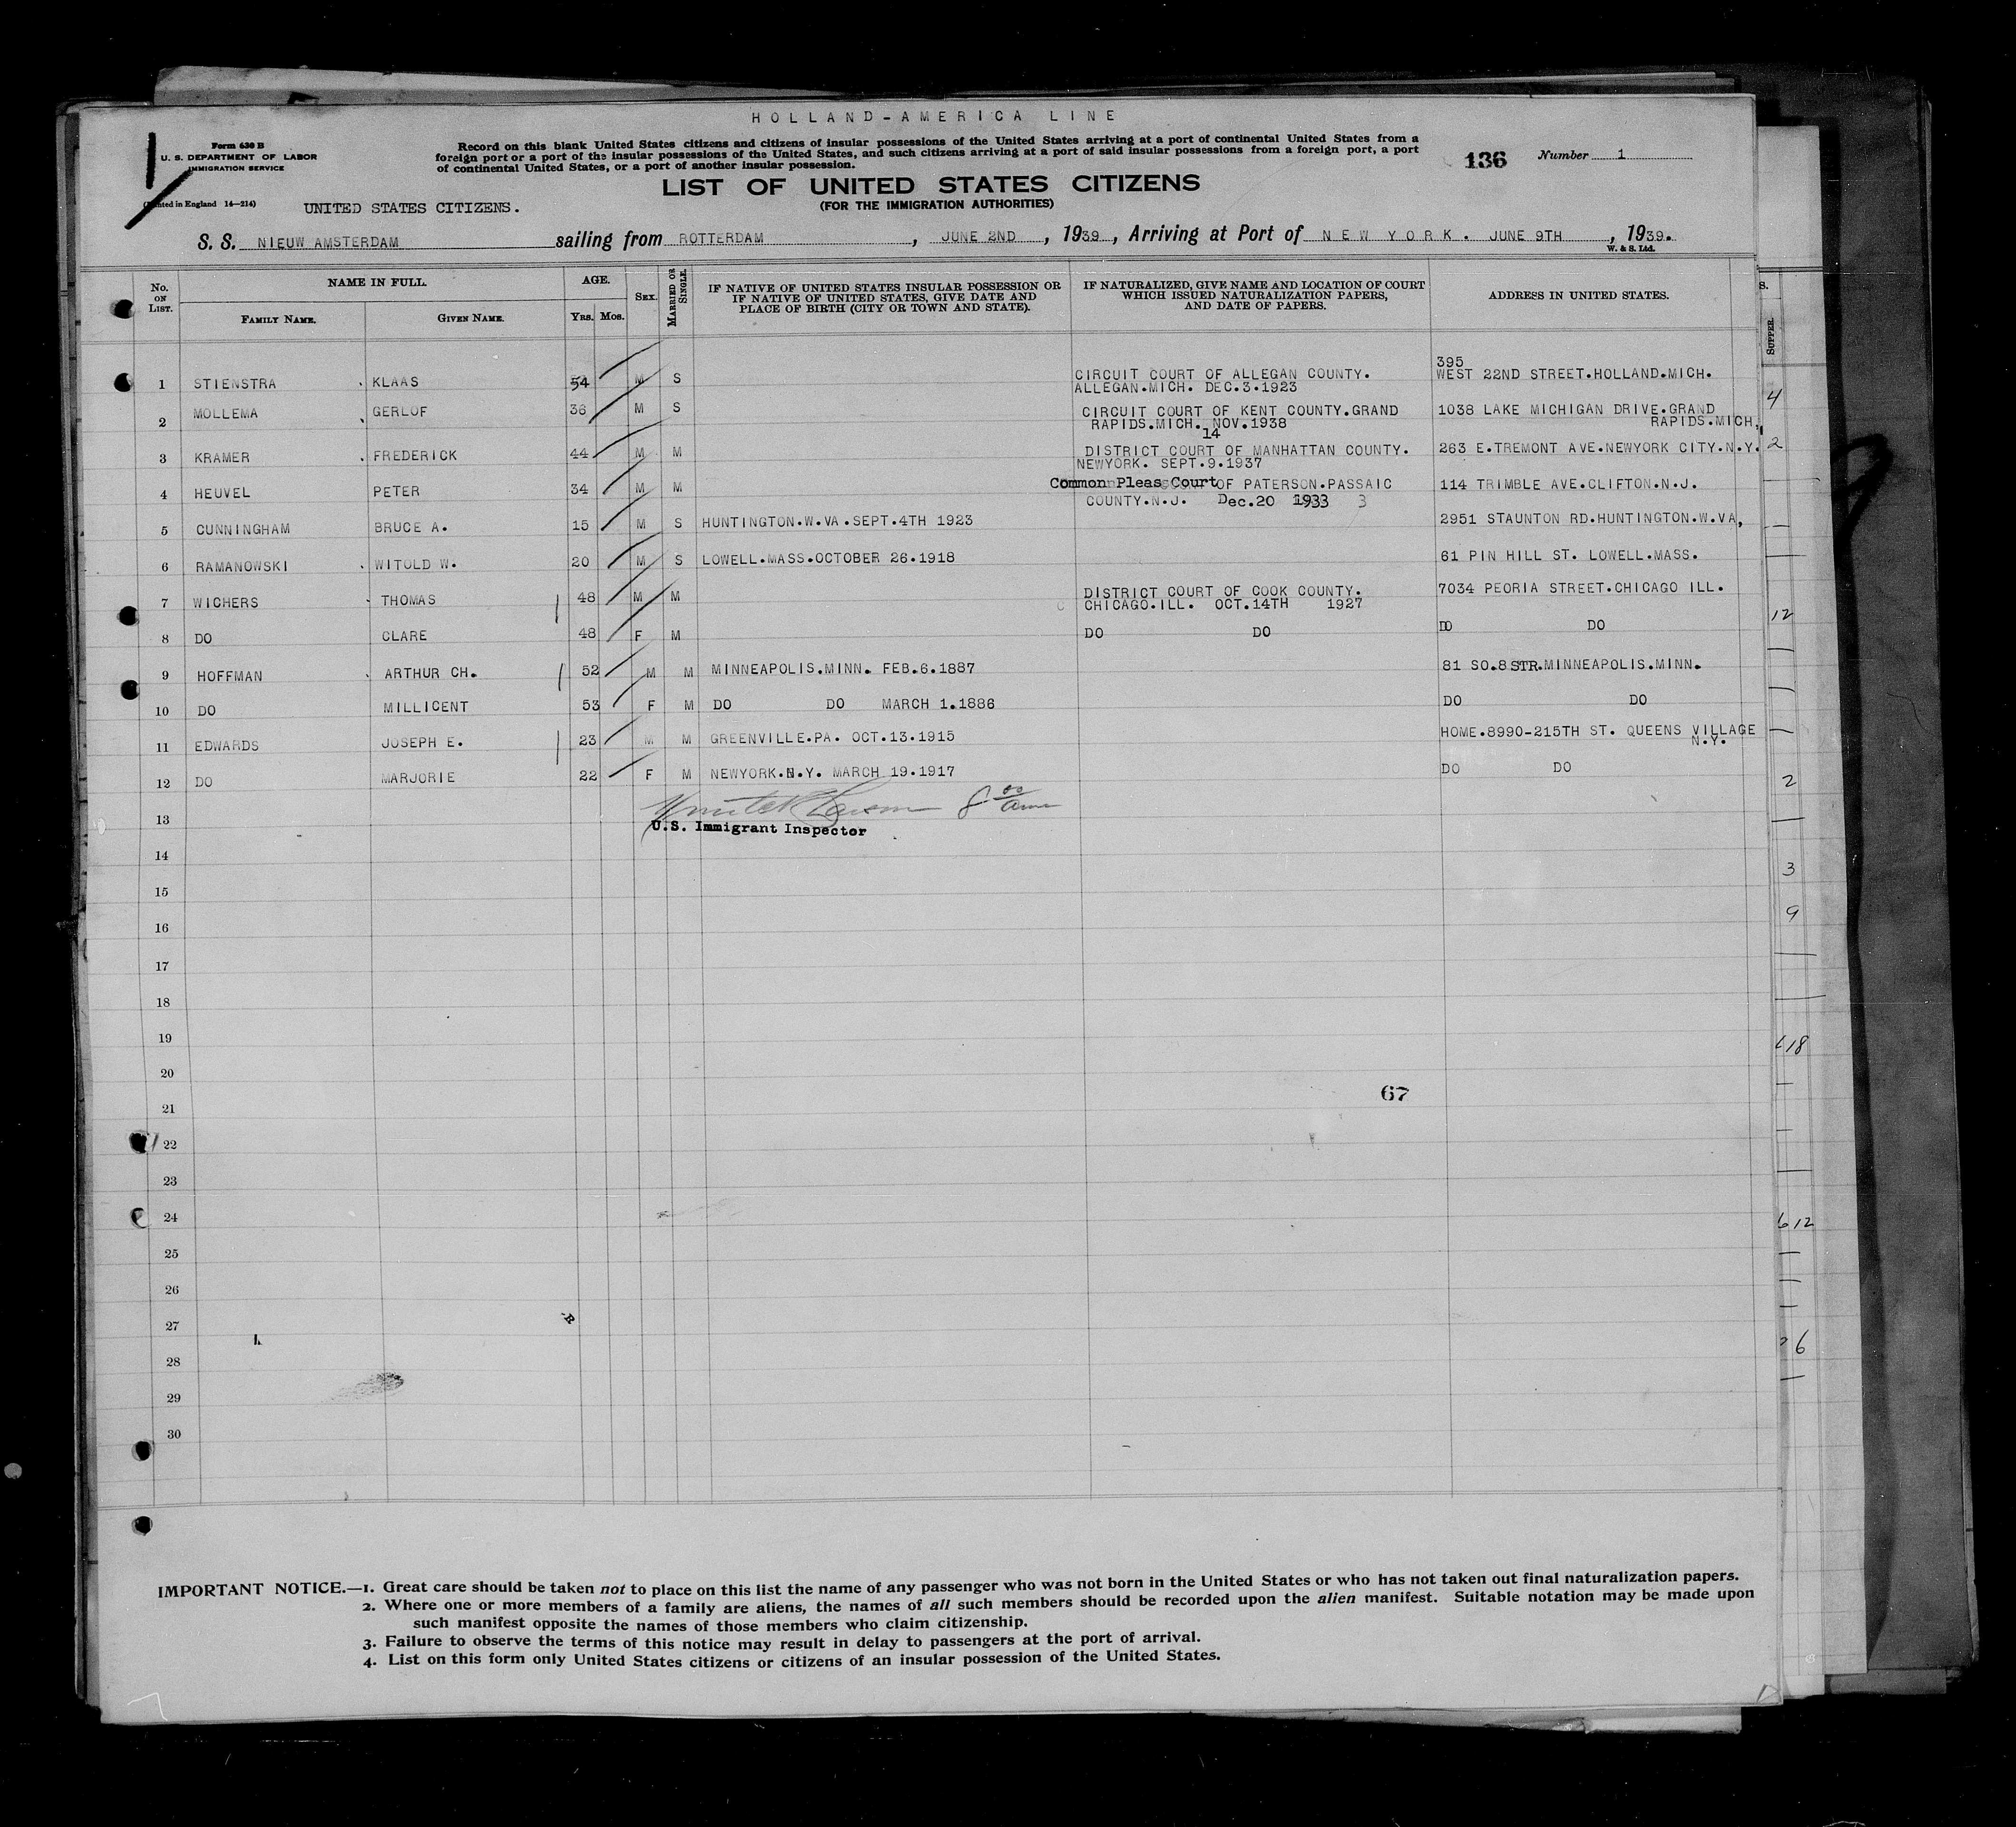 HOLLAND-AMERICA LINE
Form 630 B
U. S. DEPARTMENT OF LABOR
IMMIGRATION SERVICE
(Printed in England 14—214)
Record on this blank United States citizens and citizens of insular possessions of the United States arriving at a port of continental United States from a
foreign port or a port of the insular possessions of the United States, and such citizens arriving at a port of said insular possessions from a foreign port, a port
of continental United States, or a port of another insular possession.
136 Number 1
LIST OF UNITED STATES CITIZENS
(FOR THE IMMIGRATION AUTHORITIES)
UNITED STATES CITIZENS.
S. S. NIEUW AMSTERDAM sailing from ROTTERDAM, JUNE 2ND, 1939, Arriving at Port of NEW YORK. JUNE 9TH, 1939.
W. & S. Ltd.
No. ON LIST. NAME IN FULL. FAMILY NAME. GIVEN NAME. AGE. YRS. MOS. SEX. MARRIED OR SINGLE.
IF NATIVE OF UNITED STATES INSULAR POSSESSION OR
IF NATIVE OF UNITED STATES, GIVE DATE AND
PLACE OF BIRTH (CITY OR TOWN AND STATE).
IF NATURALIZED, GIVE NAME AND LOCATION OF COURT
WHICH ISSUED NATURALIZATION PAPERS,
AND DATE OF PAPERS.
ADDRESS IN UNITED STATES.
SUPPER.
1 STIENSTRA KLAAS 54 M S CIRCUIT COURT OF ALLEGAN COUNTY. 395
ALLEGAN.MICH. DEC.3.1923 WEST 22ND STREET.HOLLAND.MICH.
2 MOLLEMA GERLOF 36 M S CIRCUIT COURT OF KENT COUNTY.GRAND 1038 LAKE MICHIGAN DRIVE.GRAND
RAPIDS.MICH. NOV.1938 RAPIDS.MICH.
14
3 KRAMER FREDERICK 44 M M DISTRICT COURT OF MANHATTAN COUNTY. 263 E.TREMONT AVE.NEWYORK CITY.N.Y.
NEWYORK. SEPT.9.1937
4 HEUVEL PETER 34 M M Common Pleas Court OF PATERSON.PASSAIC 114 TRIMBLE AVE.CLIFTON.N.J.
COUNTY.N.J. Dec.20 1933 3
5 CUNNINGHAM BRUCE A. 15 M S HUNTINGTON.W.VA.SEPT.4TH 1923 2951 STAUNTON RD.HUNTINGTON.W.VA,
6 RAMANOWSKI WITOLD W. 20 M S LOWELL.MASS.OCTOBER 26.1918 61 PIN HILL ST. LOWELL.MASS.
7 WICHERS THOMAS 48 M M DISTRICT COURT OF COOK COUNTY. 7034 PEORIA STREET.CHICAGO ILL.
CHICAGO.ILL. OCT.14TH 1927
8 DO CLARE 48 F M DO DO DO DO
9 HOFFMAN ARTHUR CH. 52 M M MINNEAPOLIS.MINN. FEB.6.1887 81 SO.8 STR.MINNEAPOLIS.MINN.
10 DO MILLICENT 53 F M DO DO MARCH 1.1886 DO DO
11 EDWARDS JOSEPH E. 23 M M GREENVILLE.PA. OCT.13.1915 HOME.8990-215TH ST. QUEENS VILLAGE
N.Y.
12 DO MARJORIE 22 F M NEWYORK.N.Y. MARCH 19.1917 DO DO
13
8 00 am
U.S. Immigrant Inspector
14
15
16
17
18
19
20
67
21
22
23
24
25
26
27
28
29
30
4
2
12
2
3
9
18
6 12
6
IMPORTANT NOTICE.—1. Great care should be taken not to place on this list the name of any passenger who was not born in the United States or who has not taken out final naturalization papers.
2. Where one or more members of a family are aliens, the names of all such members should be recorded upon the alien manifest. Suitable notation may be made upon
such manifest opposite the names of those members who claim citizenship.
3. Failure to observe the terms of this notice may result in delay to passengers at the port of arrival.
4. List on this form only United States citizens or citizens of an insular possession of the United States.